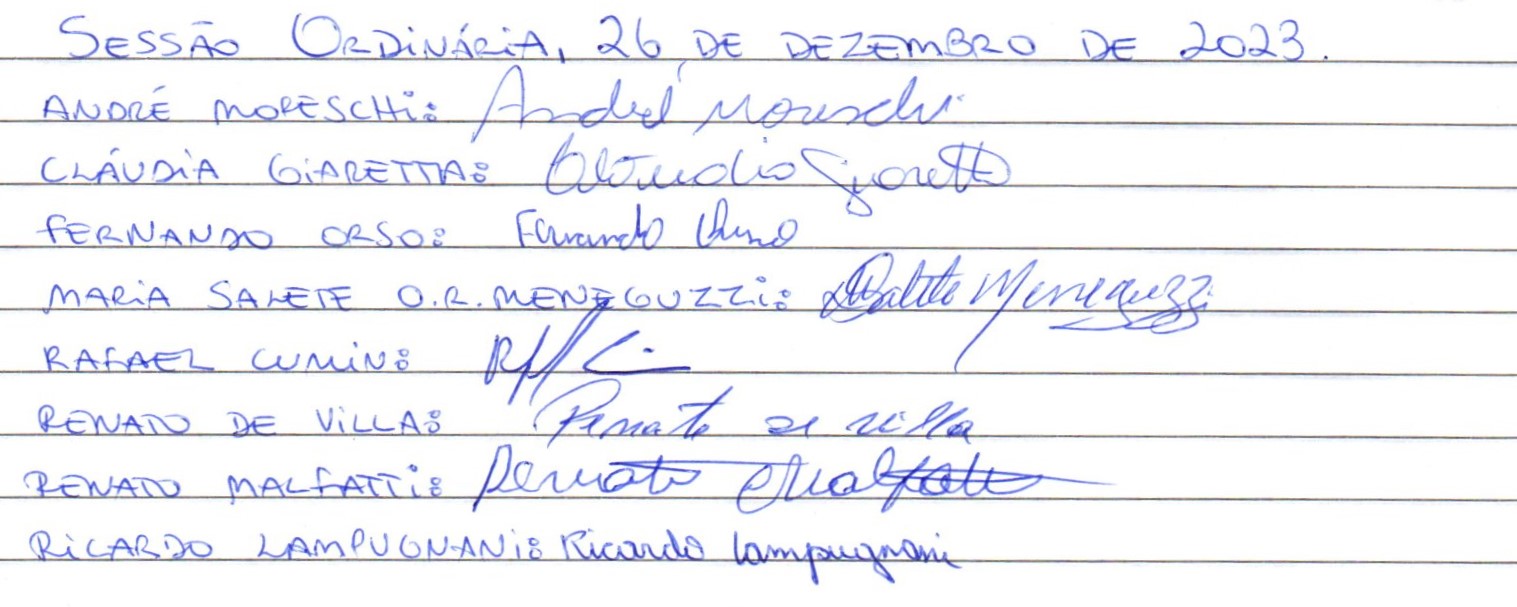 SESSÃO ORDINÁRIA, 26 DE DEZEMBRO DE 2023.
ANDRÉ MORESCHI: André Moreschi
CLÁUDIA GIARETTA: Claudia Giaretta
FERNANDO ORSO: Fernando Orso
MARIA SALETE O.R. MENEGUZZI: MSalete Meneguzzi
RAFAEL CUMIN:
RENATO DE VILLA: Renato de villa
RENATO MALFATTI: Renato Malfatti
RICARDO LAMPUGNANI: Ricardo Lampugnani